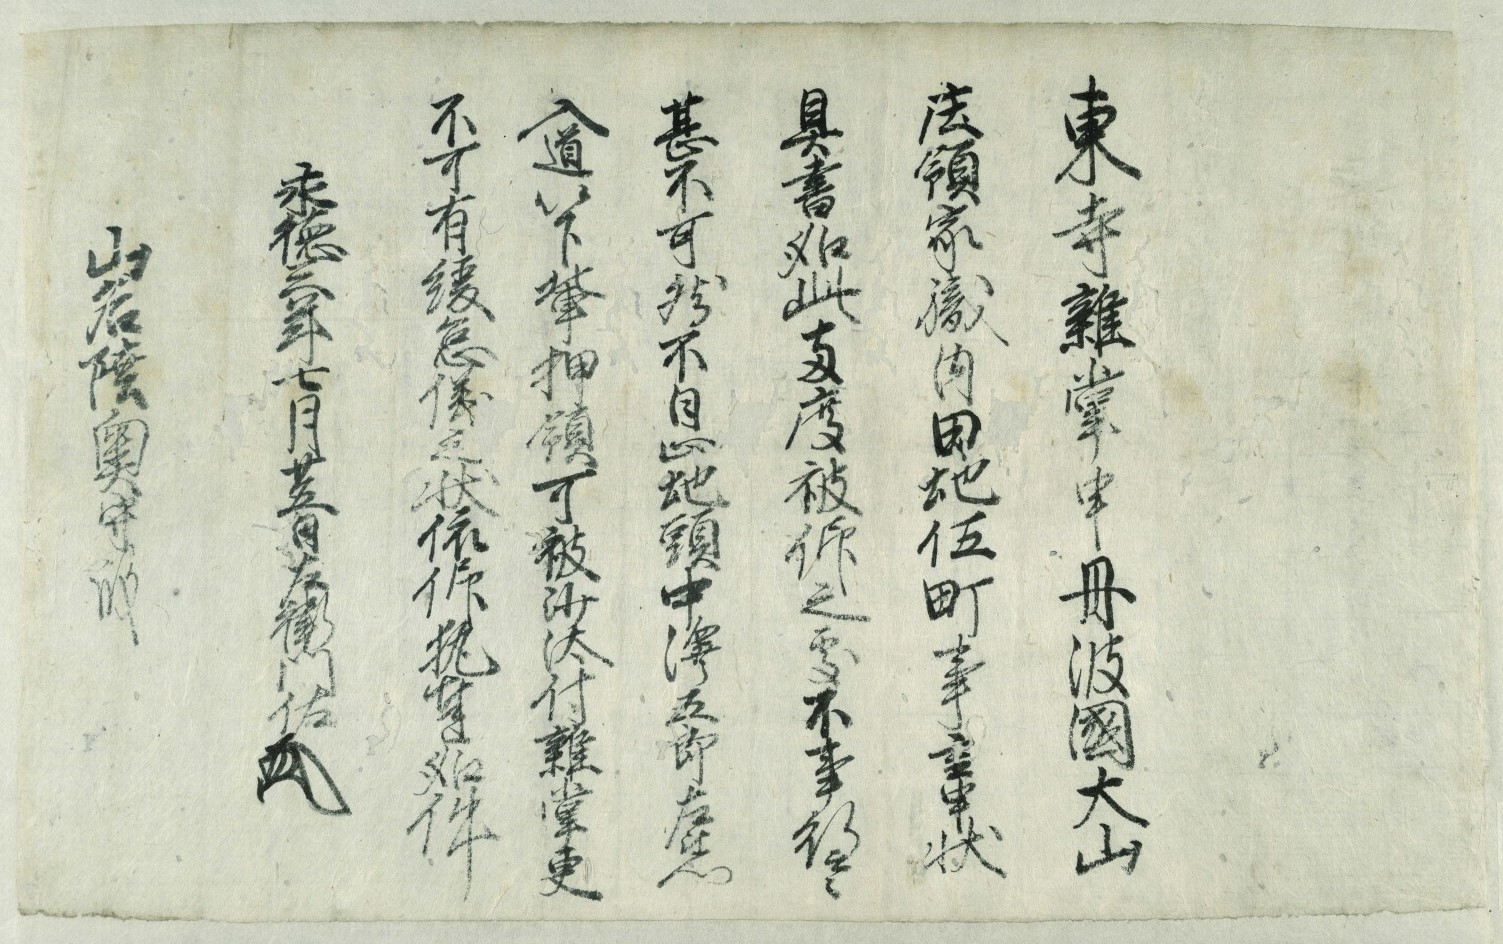 東寺雑掌申丹波國大山
庄領家職内田地伍町事重申状
具書如此両度被仰之處不事行云々
甚不可然不日止地頭中澤五郎左衛門
入道以下輩押領可被沙汰付雑掌更
不可有緩怠儀之状依仰執達如件
永徳二年七月廿五日左衛門佐
山名陸奥守殿